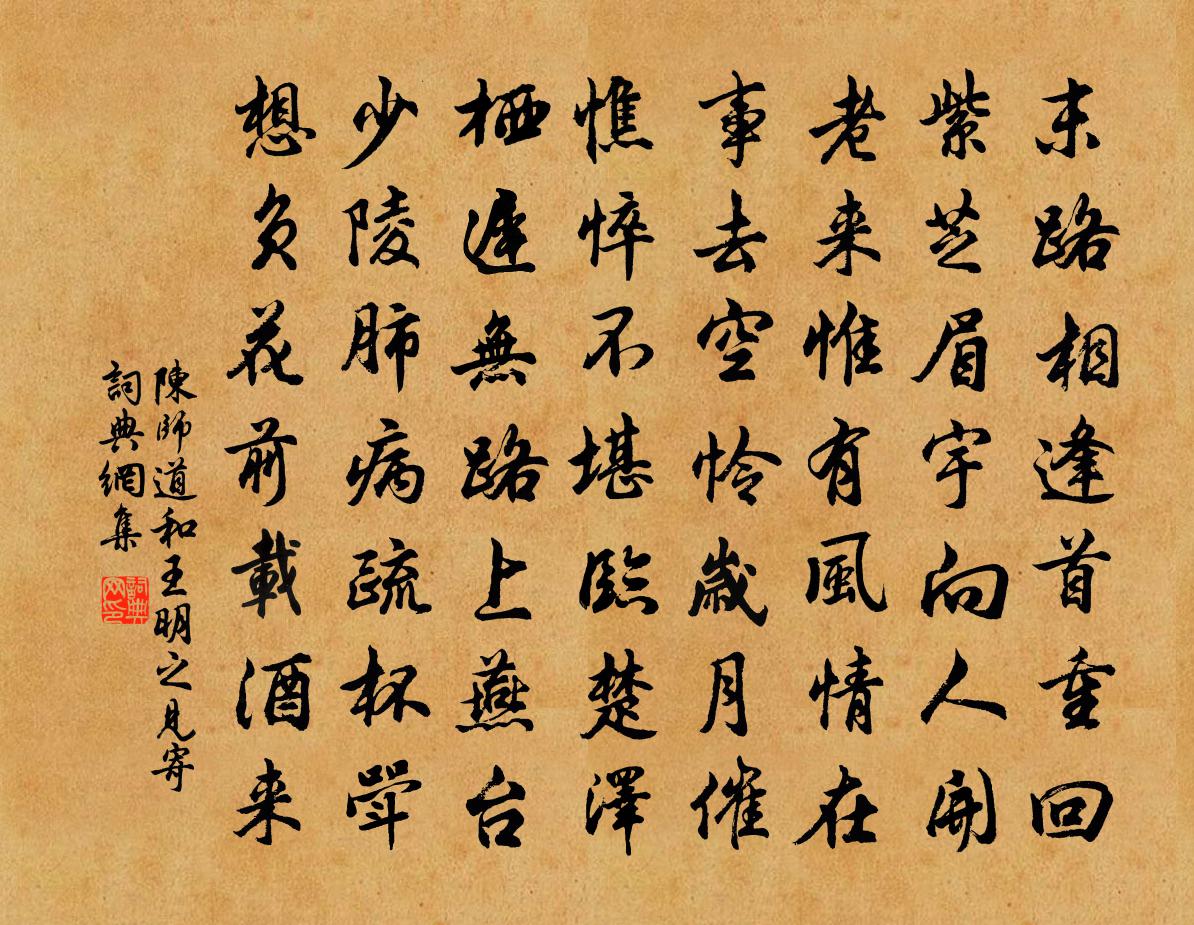 末路相逢首重回
紫芝眉宇向人開
老来惟有風情在
事去空怜歲月催
憔悴不堪臨楚澤
栖遲無路上燕台
少陵肺病疏杯斝
想負花前載酒来
陳師道和王明之見寄
詞典網集
詞典
网印